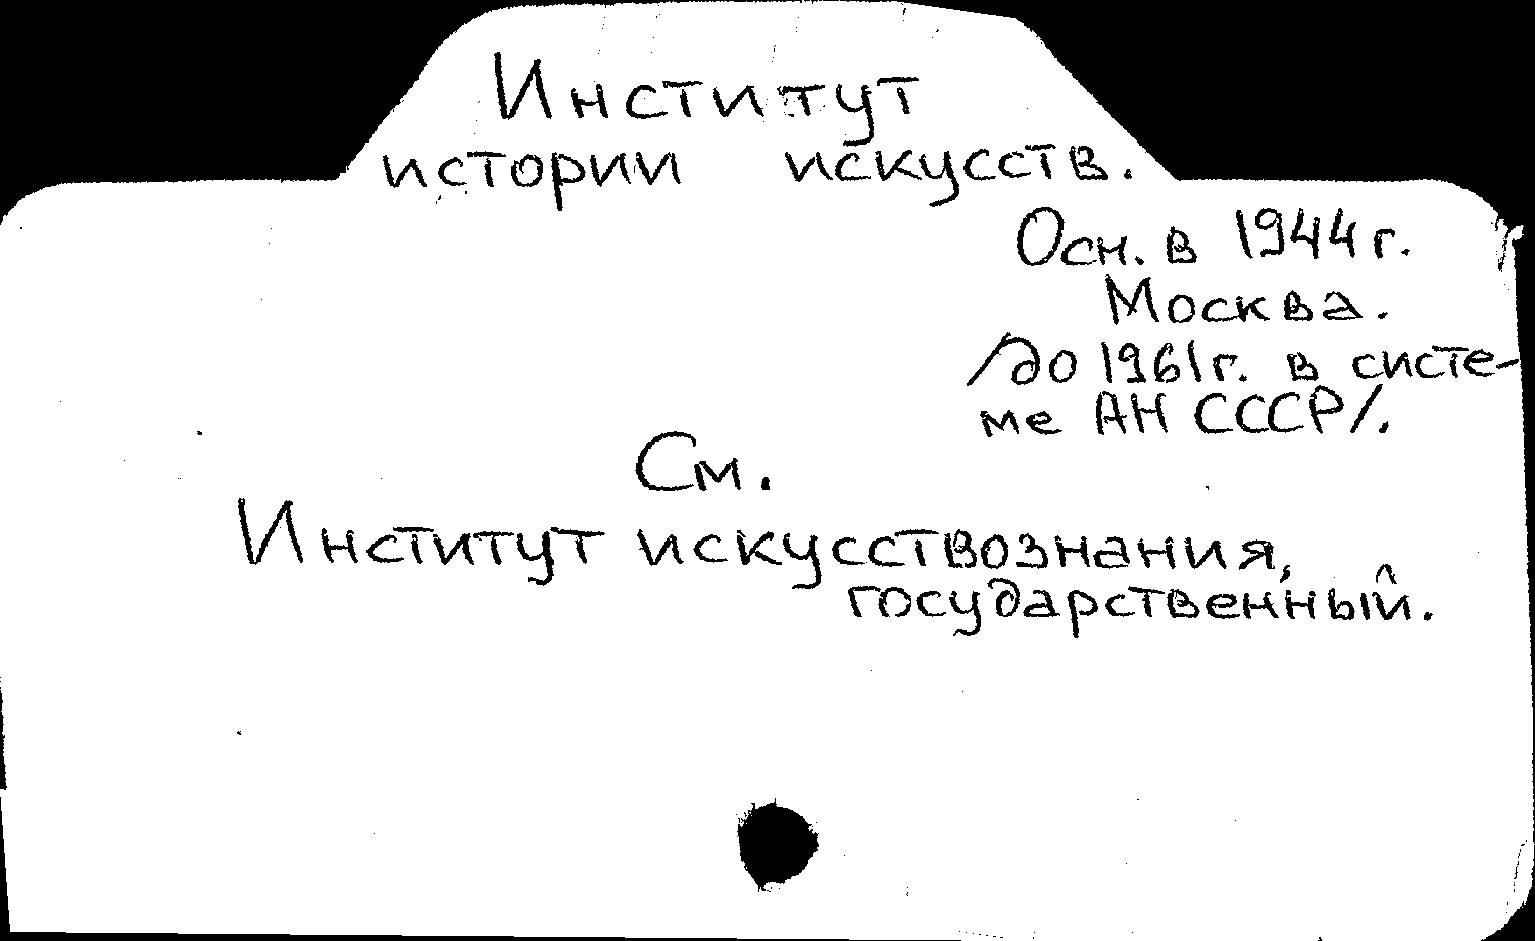 Институт
истории искусств.
Осн. в 1944 г.
Москва.
/до 1961 г. в систе-
ме АН СССР/.
См.
Институт искусствознания,
государственный.